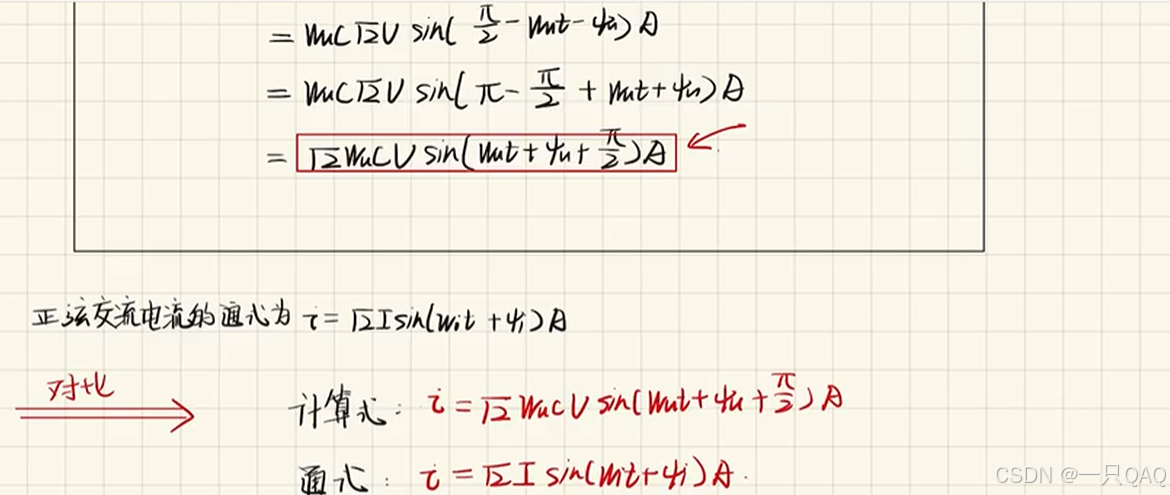 = ωuC√2U sin(π/2-ωut-ψu)A
= ωuC√2U sin(π-π/2+ωut+ψu)A
= √2ωuCU sin(ωut+ψu+π/2)A
正弦交流电流的通式为 i=√2Isin(ωit+ψi)A
对比
计算式: i=√2ωuCU sin(ωut+ψu+π/2)A
通式: i=√2I sin(ωit+ψi)A.
CSDN @一只QAQ